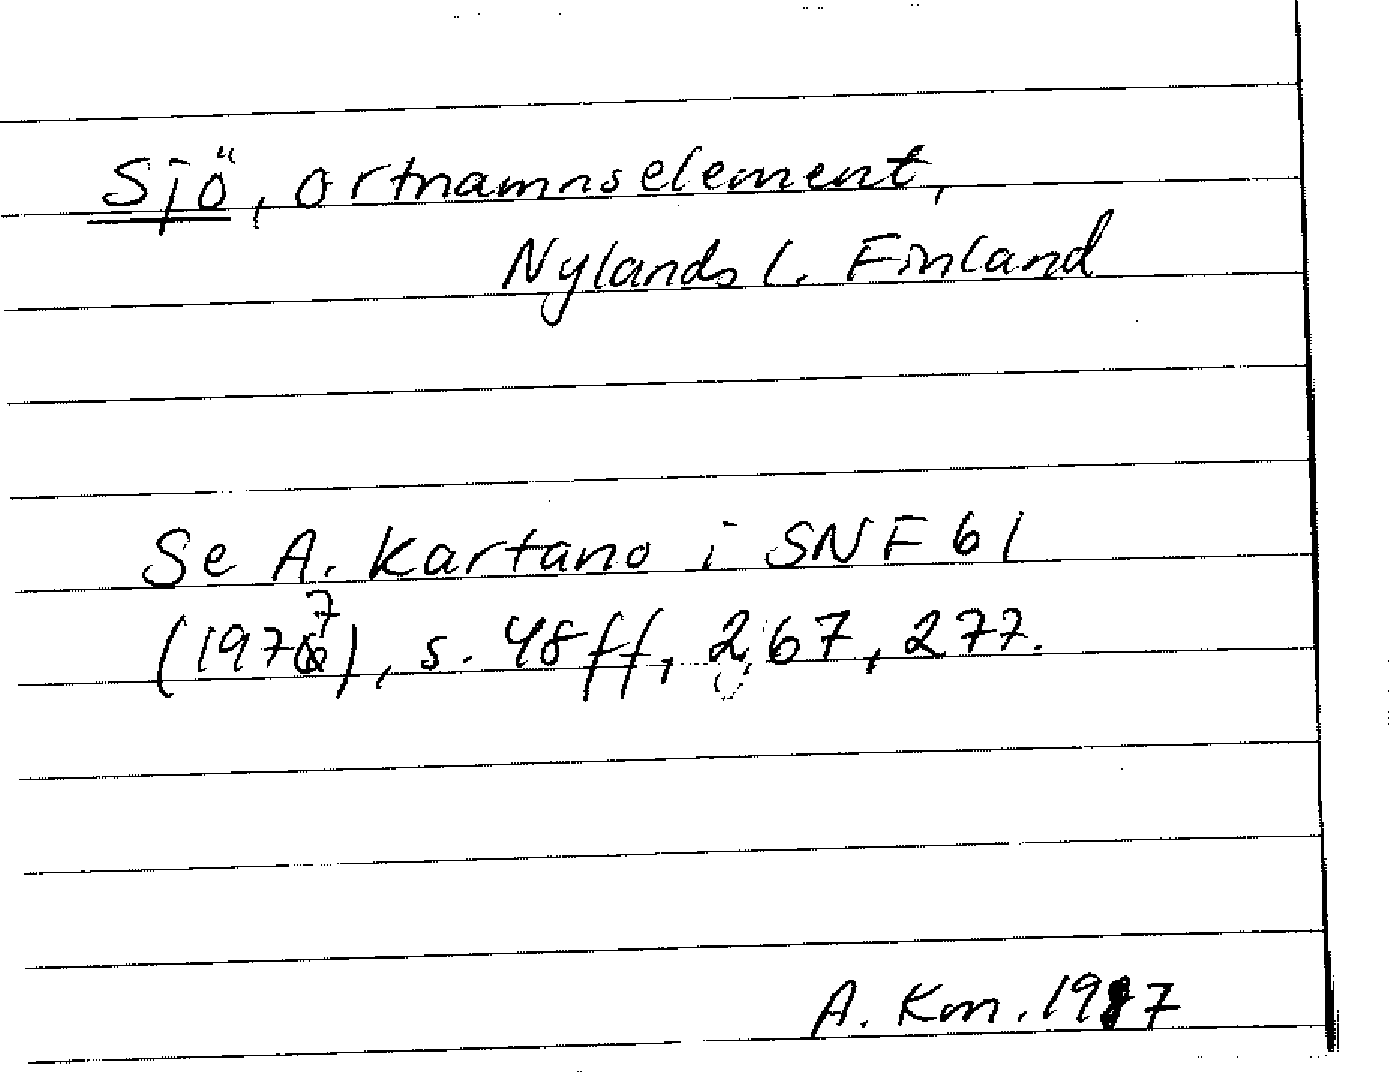 Sjö, ortnamnselement,
Nylands l. Finland
Se A. Kartano i SNF 61
(1977), s. 48ff, 267, 277.
A. Km. 1987